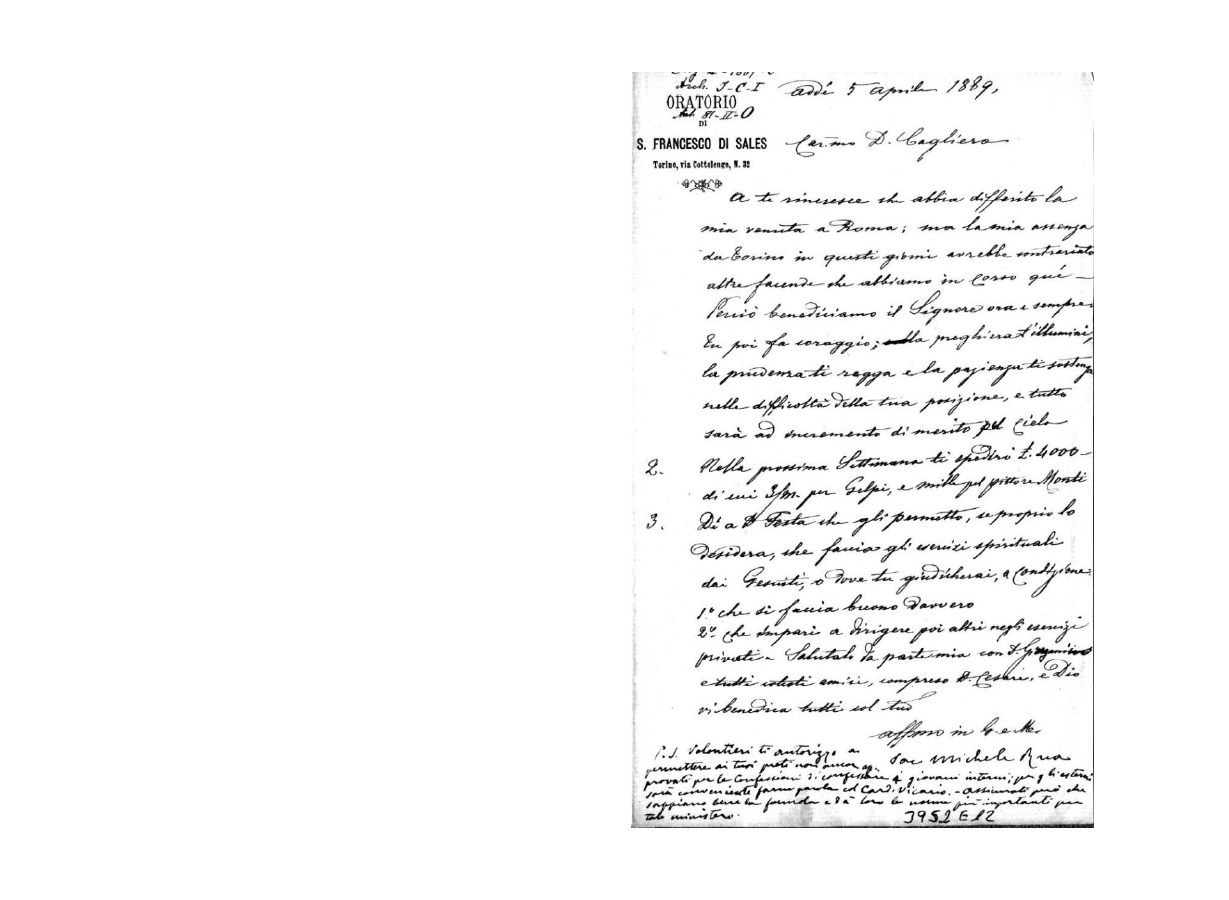 Arch. J-C-I
addì 5 aprile 1889,
ORATORIO
Arch. 81-II-O
DI
S. FRANCESCO DI SALES
Car.mo D. Cagliero
Torino, via Cottolengo, N. 32
A te rincresce che abbia differito la
mia venuta a Roma; ma la mia assenza
da Torino in questi giorni avrebbe contrariato
altre facende che abbiamo in corso quì —
Perciò benediciamo il Signore ora e sempre.
Tu poi fa coraggio; la preghiera t'illumini,
la prudenza ti regga e la pazienza ti sostenga
nelle difficoltà della tua posizione, e tutto
sarà ad incremento di merito pel Cielo
2. Nella prossima Settimana ti spedirò £. 4000 —
di cui 3/m. per Gelpi, e mille pel pittore Monti
3. Dì a D Festa che gli permetto, se proprio lo
desidera, che faccia gli esercizi spirituali
dai Gesuiti, o dove tu giudicherai, a condizione:
1.° che si faccia buono davvero
2.° che impari a dirigere poi altri negli esercizi
privati - Salutalo da parte mia con D.
e tutti cotesti amici, compreso D. Cesari, e Dio
vi benedica tutti col tuo
aff.mo in G. e M.
Sac. Michele Rua
P.S. Volontieri ti autorizzo a
permettere ai tuoi preti non ancor ap-
provati per le Confessioni di confessare i giovani interni; per gli esterni
sarà conveniente farne parola col Card. Vicario. - Assicurati però che
sappiano bene la formola e dà loro le norme più importanti per
tale ministero.
3952 E 12